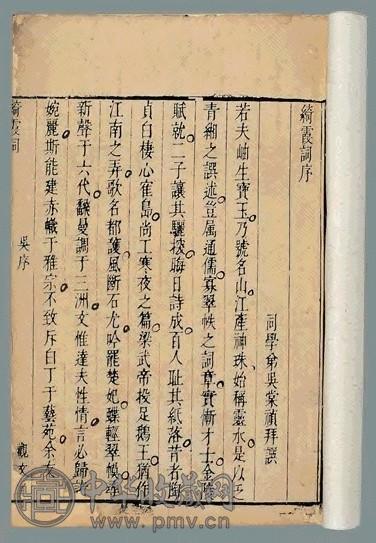 綺霞詞序
同學弟吳棠禎拜譔
若夫岫生寶玉乃號名山江產神珠始稱靈水是以乏
青緗之譔述豈屬通儒寡翠帙之詞章實慚才士金陵
賦就二子讓其驪晦日詩成百人耻其紙落昔者陶
貞白棲心隺島尚工寒夜之篇梁武帝投足鵝王猶作
江南之弄歌名都護風斷石尤吟罷楚妃蝶輕翠幙
新聲于六代飜曼調于三洲文惟達夫性情言必歸
婉麗斯能建赤幟于雅宗不致斥白丁于藝苑余友
綺霞詞
吳序
觀文
中华收藏网
www.pmv.cn